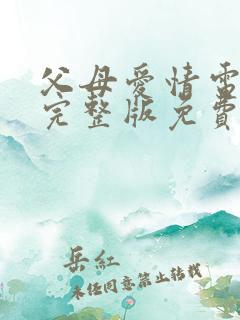 父母爱情電
完整版免費
岳紅
未经同意禁止转载